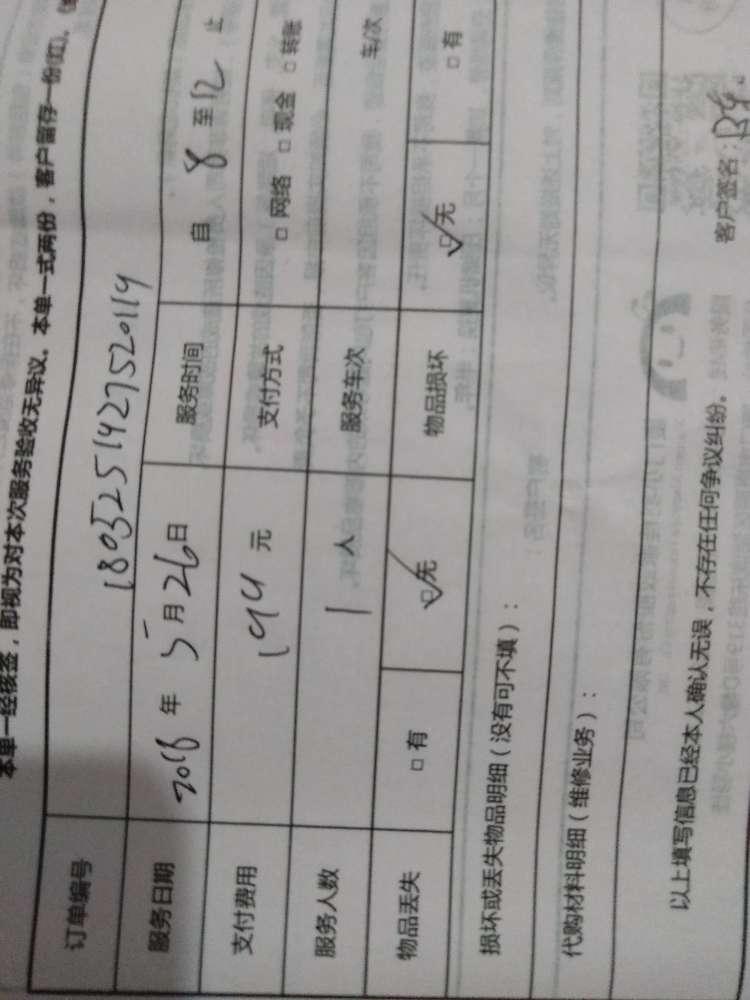 本单一经核签，即视为对本次服务验收无异议。本单一式两份，客户留存一份(红)。
订单编号 1805251427520119
服务日期 2018 年 5 月 26 日 服务时间 自 8 至 12 止
支付费用 194 元 支付方式 □ 网络 □ 现金 □ 转账
服务人数 1 人 服务车次 车/次
物品丢失 □ 有 ☑ 无 物品损坏 ☑ 无 □ 有
损坏或丢失物品明细（没有可不填）：
代购材料明细（维修业务）：
以上填写信息已经本人确认无误，不存在任何争议纠纷。
客户签名：